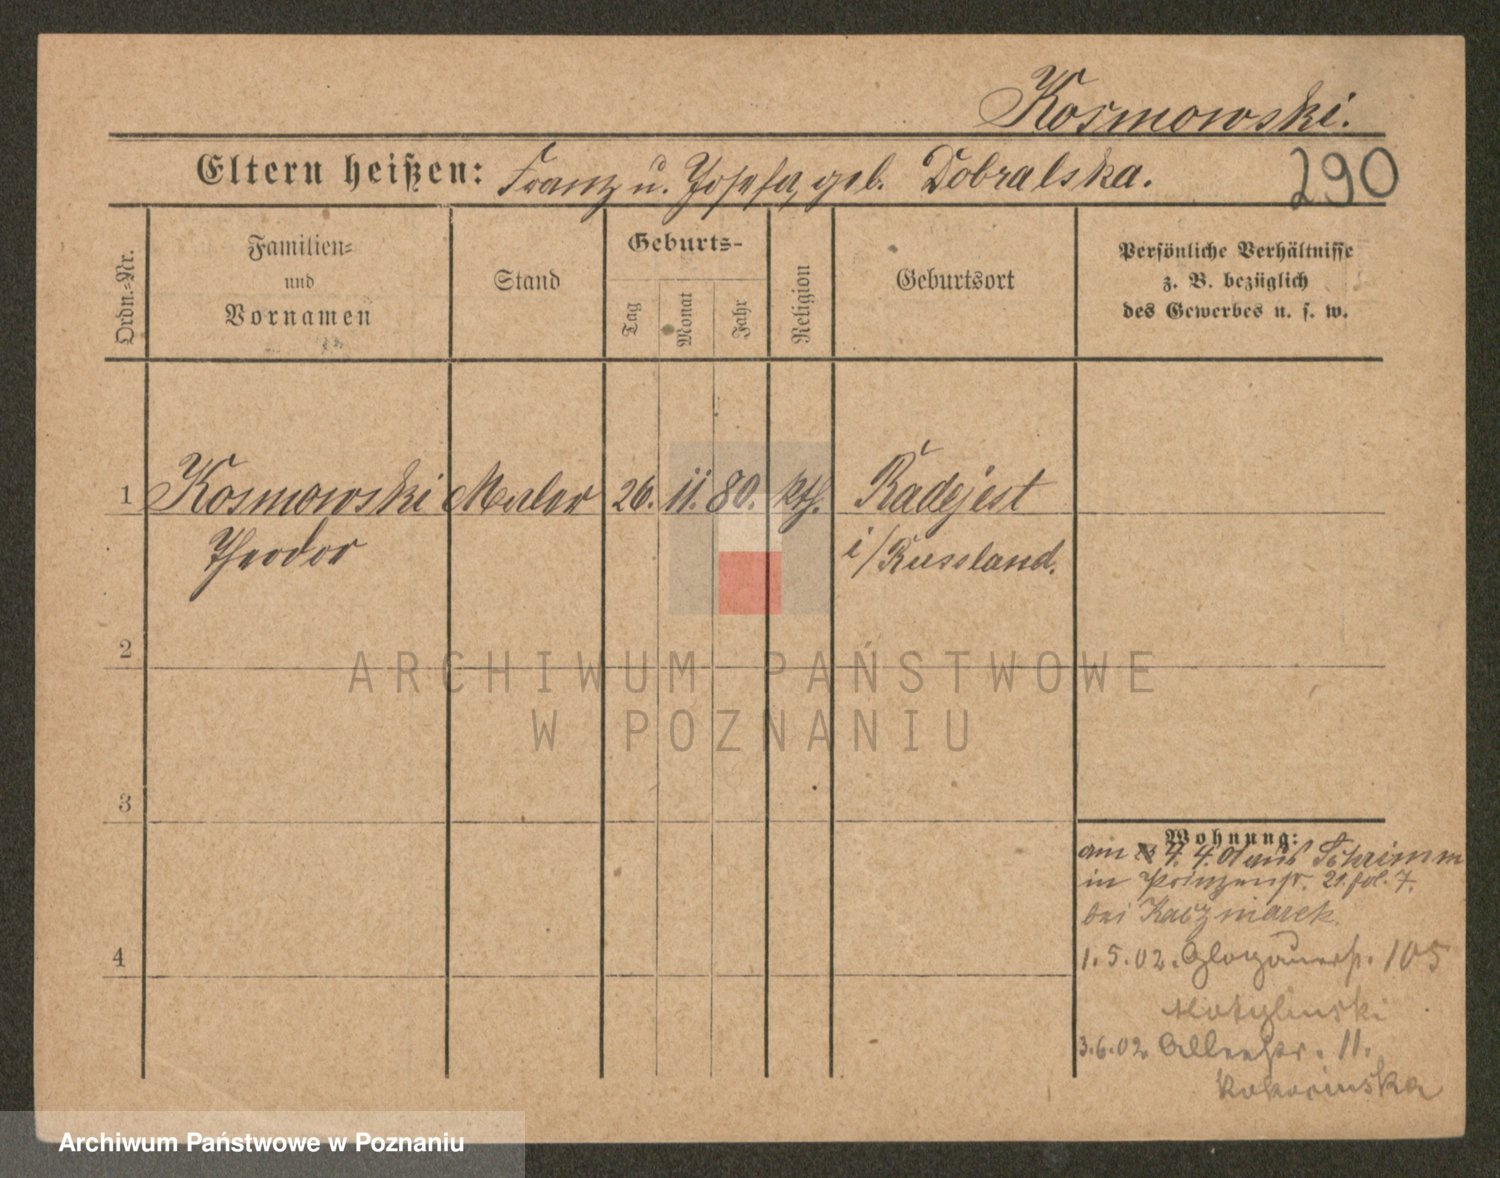 Kosmowski.
Eltern heißen: Franz u. Josefa, geb. Dobralska.
290
Ordn.-Nr.
Familien-
und
Vornamen
Stand
Geburts-
Tag
Monat
Jahr
Religion
Geburtsort
Persönliche Verhältnisse
z. B. bezüglich
des Gewerbes u. s. w.
1 Kosmowski Maler 26. 11. 80. kth. Radejest
Theodor i/Russland.
2
ARCHIWUM PAŃSTWOWE
W POZNANIU
3
Wohnung:
am 4. 4. 01 aus Schrimm
in Prinzenstr. 21. fol. 7.
bei Kaczmarek.
4
1.5.02. Glogauerstr. 105
Motylinski
3.6.02. Alleestr. 11.
Kokocinska
Archiwum Państwowe w Poznaniu